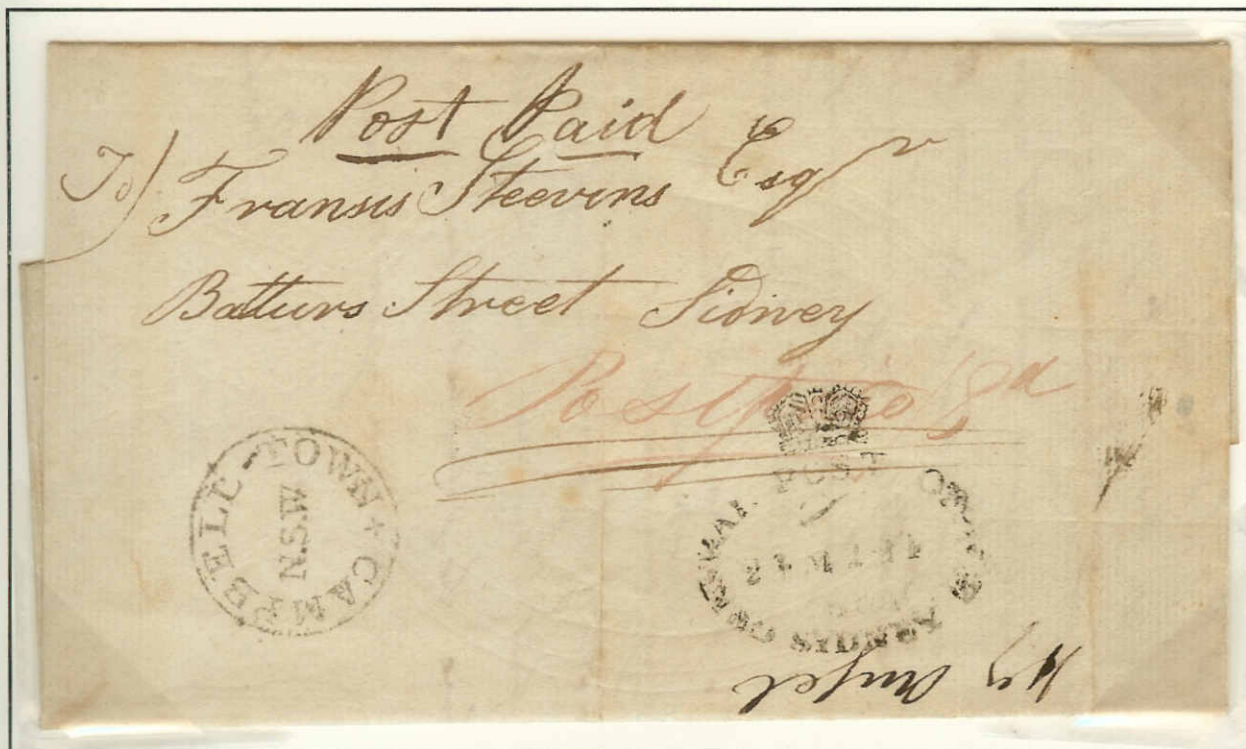 Post Paid
To) Fransis Steevins Esqr
Batturs Street Sidney
Post p 8d
CAMPBELL-TOWN +
N.S.W
GENERAL POST OFFICE
SYDNEY
Hy Angel